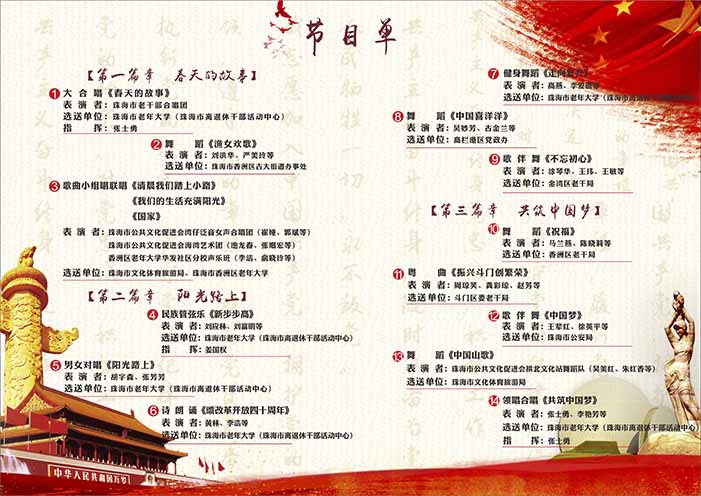 节目单
【第一篇章 春天的故事】
1 大合唱《春天的故事》
表演者：珠海市老干部合唱团
选送单位：珠海市老年大学（珠海市离退休干部活动中心）
指挥：张士勇
2 舞蹈《渔女欢歌》
表演者：刘洪华、严美玲等
选送单位：珠海市香洲区吉大街道办事处
3 歌曲小组唱联唱《清晨我们踏上小路》
《我们的生活充满阳光》
《国家》
表演者：珠海市公共文化促进会湾仔泛喜女声合唱团（崔娅、郭斌等）
珠海市公共文化促进会海湾艺术团（池龙春、张姻宏等）
香洲区老年大学华发社区分校声乐班（李洁、俞晓玲等）
选送单位：珠海市文化体育旅游局、珠海市香洲区老年大学
【第二篇章 阳光路上】
4 民族管弦乐《新步步高》
表演者：刘应林、刘富明等
选送单位：珠海市老年大学（珠海市离退休干部活动中心）
指挥：姜国权
5 男女对唱《阳光路上》
表演者：胡宇森、张芳芳
选送单位：珠海市老年大学（珠海市离退休干部活动中心）
6 诗朗诵《颂改革开放四十周年》
表演者：黄林、李浩等
选送单位：珠海市老年大学（珠海市离退休干部活动中心）
中华人民共和国万岁
7 健身舞蹈《走向复兴》
表演者：高燕、李爱霞等
选送单位：珠海市老年大学（珠海市离退休干部活动中心）
8 舞蹈《中国喜洋洋》
表演者：吴妙芳、古金兰等
选送单位：高栏港区党政办
9 歌伴舞《不忘初心》
表演者：涂琴华、王玮、王敏等
选送单位：金湾区老干局
【第三篇章 共筑中国梦】
10 舞蹈《祝福》
表演者：马兰燕、陈晓莉等
选送单位：香洲区老干局
11 粤曲《振兴斗门创繁荣》
表演者：周琼笑、龚彩琼、赵芳等
选送单位：斗门区委老干局
12 歌伴舞《中国梦》
表演者：王荤红、徐英平等
选送单位：珠海市公安局
13 舞蹈《中国山歌》
表演者：珠海市公共文化促进会拱北文化站舞蹈队（吴美红、朱红香等）
选送单位：珠海市文化体育旅游局
14 领唱合唱《共筑中国梦》
表演者：张士勇、李艳芳等
选送单位：珠海市老年大学（珠海市离退休干部活动中心）
指挥：张士勇